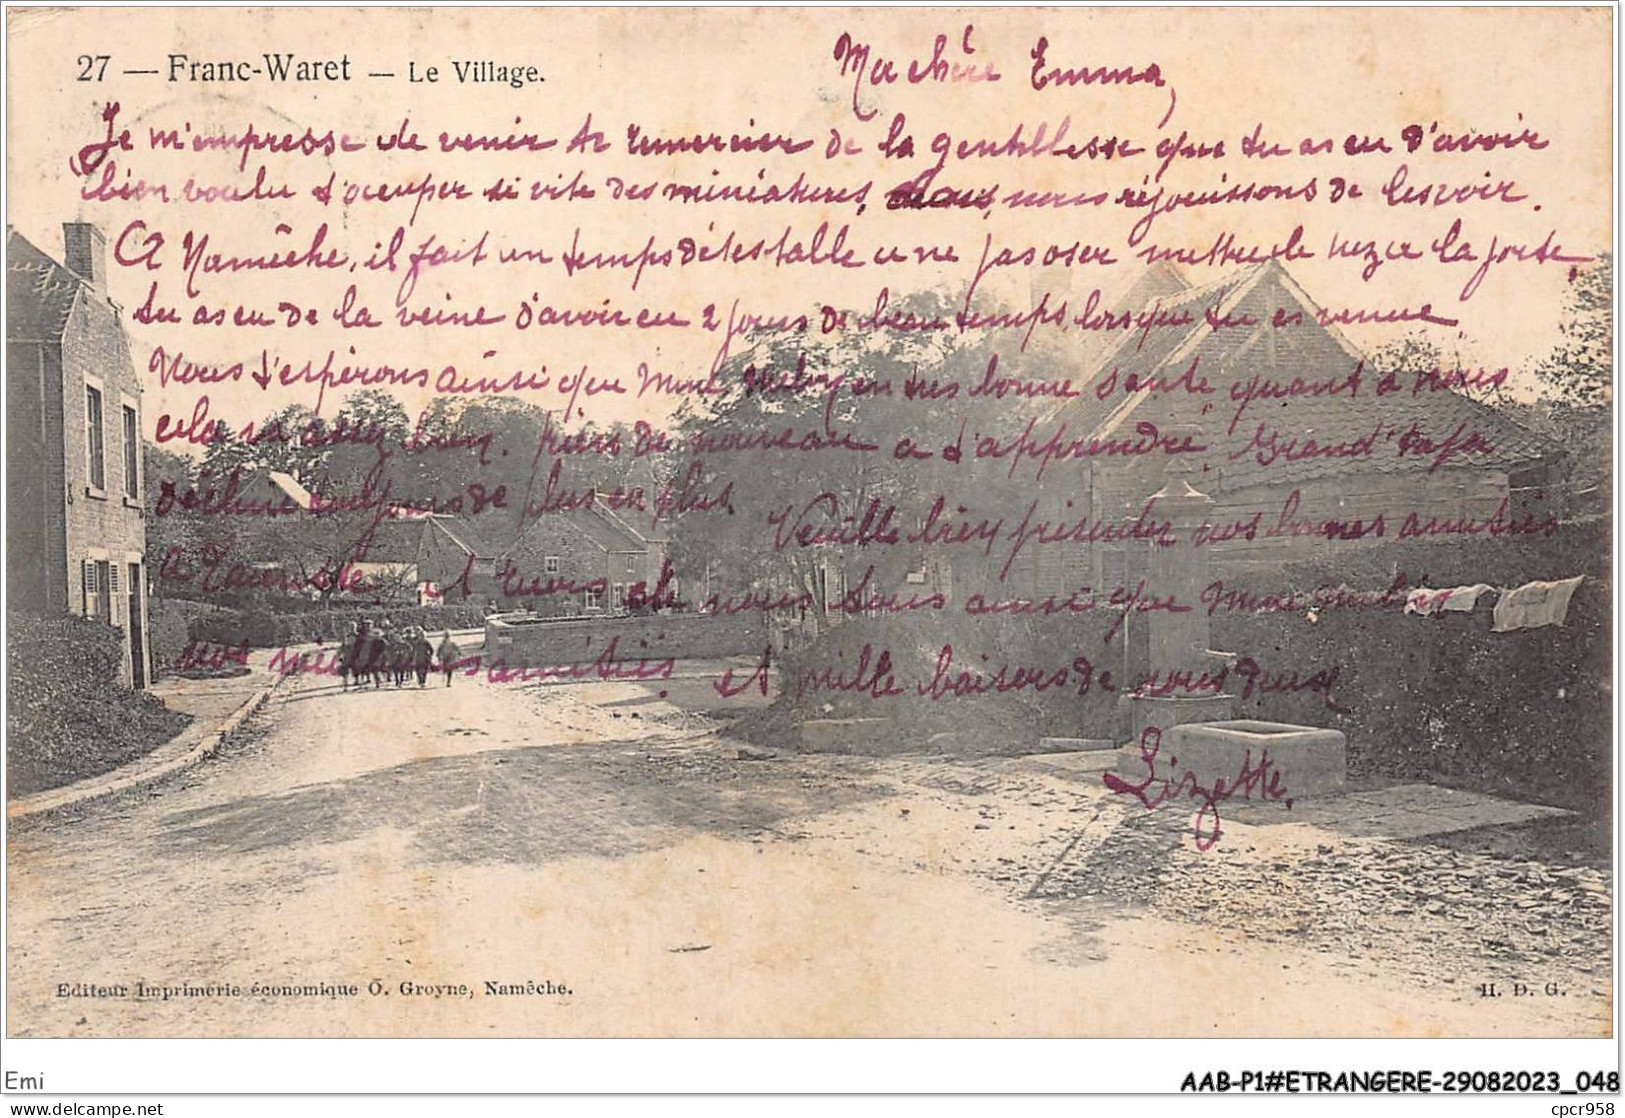 27 — Franc-Waret — Le Village.
Ma chère Emma,
Je m'empresse de venir te remercier de la gentillesse que tu as eu d'avoir
bien voulu t'occuper si vite des miniatures, nous réjouissons de les voir.
A Namêche, il fait un temps détestable a ne pas oser mettre le nez a la porte,
tu as eu de la veine d'avoir eu 2 jours de beau temps lorsque tu es venue.
Nous t'espérons ainsi que Mme en très bonne santé quant à nous
cela va assez bien. rien de nouveau a t'apprendre. Grand'papa
décline toujours de plus en plus. Veuille bien présenter nos bonnes amitiés
a et de nous tous ainsi que Mme
nos meilleures amitiés. et mille baisers de nous deux
Lizette.
Editeur Imprimerie économique O. Groyne, Namêche.
H. D. G.
Emi
AAB-P1#ETRANGERE-29082023_048
www.delcampe.net
cpcr958